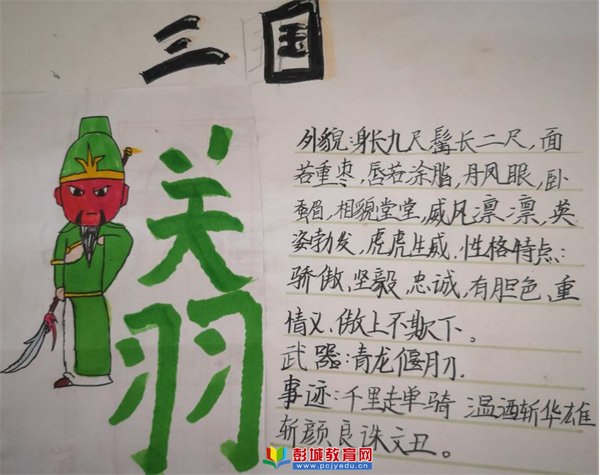 三国
关羽
外貌:身长九尺髯长二尺,面
若重枣,唇若涂脂,丹凤眼,卧
蚕眉,相貌堂堂,威风凛凛,英
姿勃发,虎虎生威.性格特点:
骄傲,坚毅,忠诚,有胆色,重
情义,傲上不欺下。
武器:青龙偃月刀.
事迹:千里走单骑 温酒斩华雄
斩颜良诛文丑。
彭城教育网
www.pcjyedu.cn